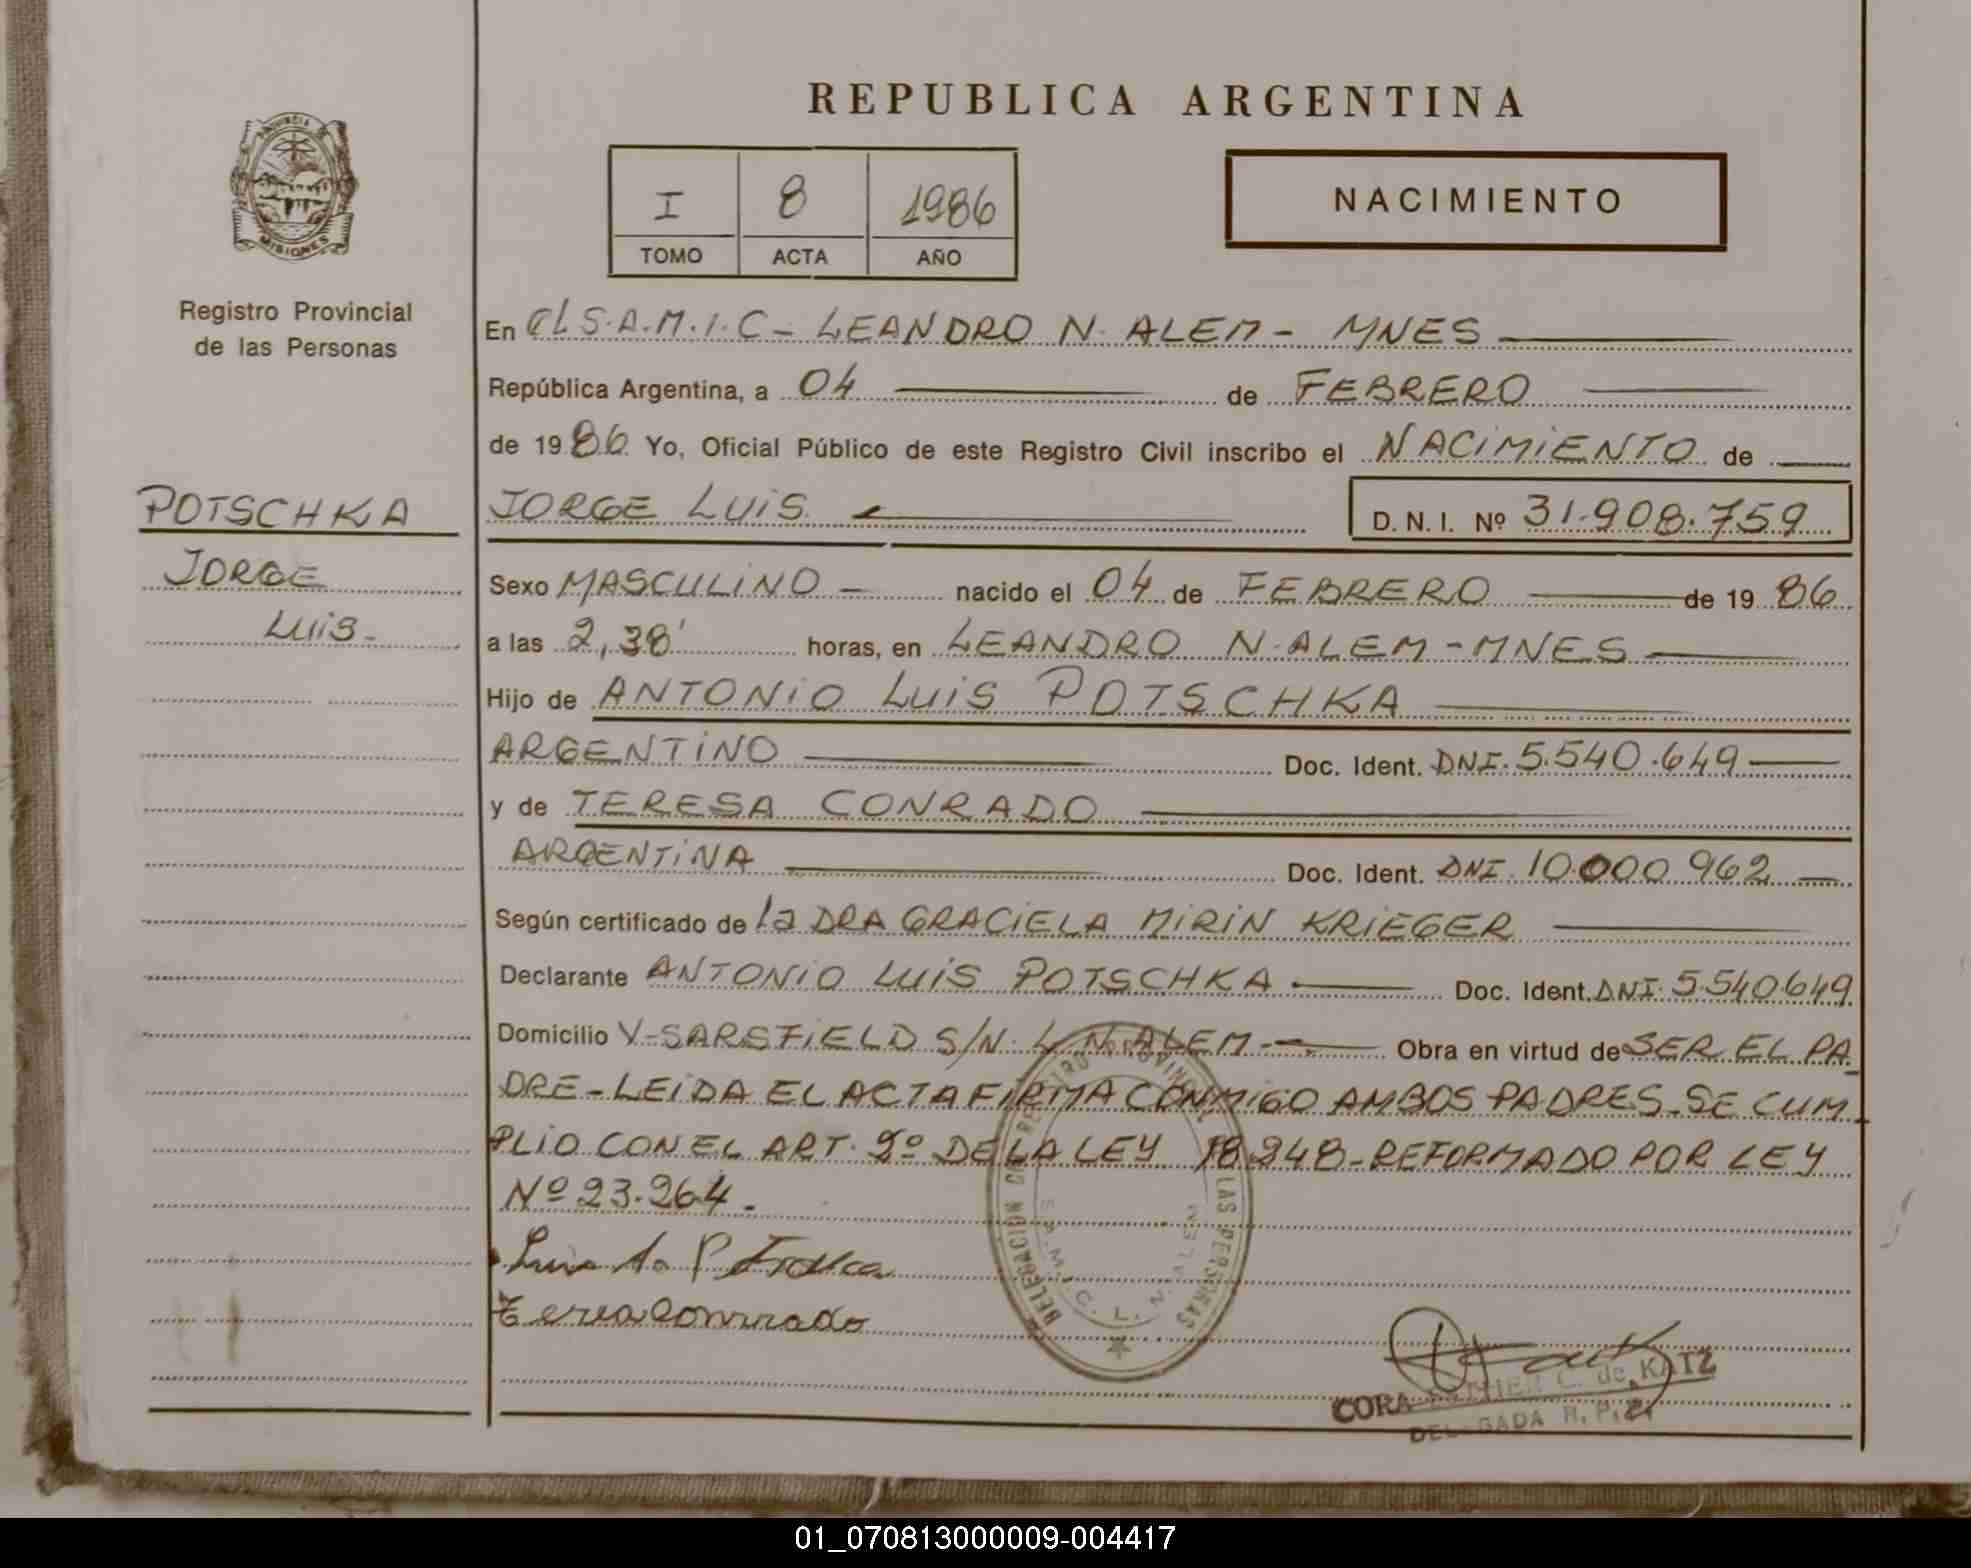 REPUBLICA ARGENTINA
PROVINCIA DE
MISIONES
Registro Provincial
de las Personas
I 8 1986
TOMO ACTA AÑO
NACIMIENTO
POTSCHKA
JORGE
LUIS-
En CLS.A.M.I.C- LEANDRO N. ALEM- MNES
República Argentina, a 04 de FEBRERO
de 1986 Yo, Oficial Público de este Registro Civil inscribo el NACIMIENTO de
JORGE LUIS D.N.I. Nº 31.908.759
Sexo MASCULINO - nacido el 04 de FEBRERO de 1986
a las 2,38' horas, en LEANDRO N. ALEM-MNES
Hijo de ANTONIO LUIS POTSCHKA
ARGENTINO Doc. Ident. DNI. 5.540.649
y de TERESA CONRADO
ARGENTINA Doc. Ident. DNI. 10.000 962
Según certificado de la DRA GRACIELA MIRIN KRIEGER
Declarante ANTONIO LUIS POTSCHKA Doc. Ident. DNI. 5.540649
Domicilio V-SARSFIELD S/N. L.N.ALEM- Obra en virtud de SER EL PA
DRE-LEIDA EL ACTA FIRMA CONMIGO AMBOS PADRES-SE CUM
PLIO CON EL ART. 2º DE LA LEY 18248-REFORMADO POR LEY
Nº 23.264.
Luis A. P
Teresa Conrrado
DELEGACIÓN LAS PERSONAS
S.A.M.I.C. L. N. ALEM
CORA C. de KATZ
DELEGADA R. P. P.
01_070813000009-004417